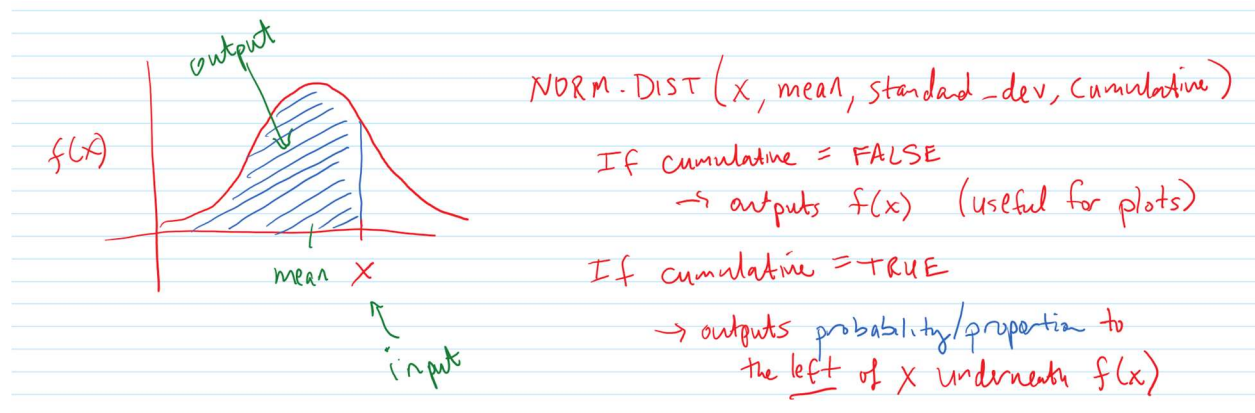 output
f(x)
mean X
input
NORM.DIST(x, mean, standard_dev, cumulative)
If cumulative = FALSE
→ outputs f(x) (useful for plots)
If cumulative = TRUE
→ outputs probability/proportion to
the left of X underneath f(x)